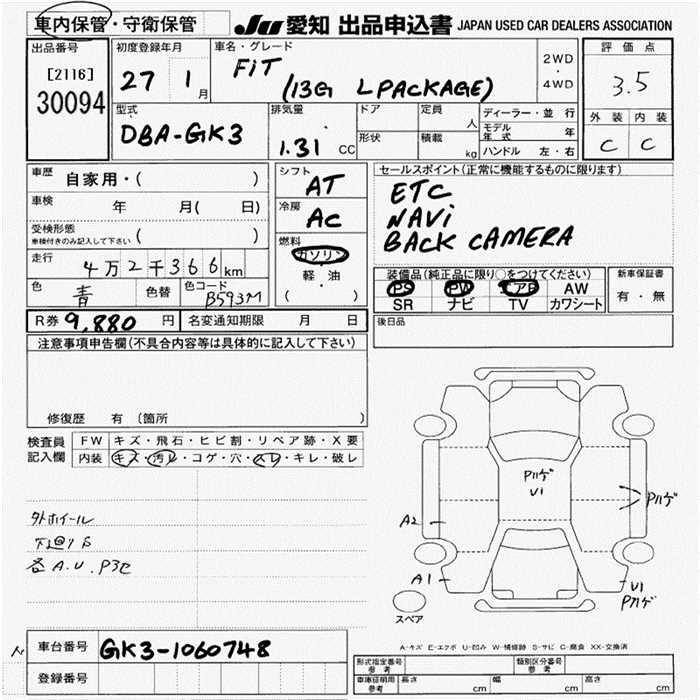 車内保管・守衛保管
JU 愛知 出品申込書 JAPAN USED CAR DEALERS ASSOCIATION
出品番号
[2116]
30094
初度登録年月
27 1月
車名・グレード
FiT
(13G L PACKAGE)
2WD
・
4WD
評価点
3.5
外装 内装
C C
型式
DBA-GK3
排気量
1.31 CC
ドア
形状
定員
人
積載
kg
ディーラー・並行
モデル年式 年
ハンドル 左・右
車歴
自家用・( )
車検
年 月( 日)
受検形態
車検付きのみ記入して下さい ( )
走行
4万2千366km
色 青 色替 色コード B593M
R券 9,880 円 名変通知期限 月 日
シフト
AT
冷房
AC
燃料
ガソリン
軽・油
( )
セールスポイント(正常に機能するものに限ります)
ETC
NAVi
BACK CAMERA
装備品(純正品に限り○をつけてください)
PS PW エアB AW
SR ナビ TV カワシート
新車保証書
有・無
後日品
注意事項申告欄(不具合内容等は具体的に記入して下さい)
修復歴 有(箇所 )
検査員記入欄
FW キズ・飛石・ヒビ割・リペア跡・X要
内装 キズ・汚れ・コゲ・穴・スレ・キレ・破レ
外ホイール
下廻りS
各A.U.P3セ
Pハゲ
U1
Pハゲ
A2
A1
U1
Pハゲ
スペア
A-キズ E-エクボ U-凹み W-補修跡 S-サビ C-腐食 XX-交換済
車台番号 GK3-1060748
登録番号
形式指定番号 参考
類別区分番号 参考
車庫証明用 参考 長さ cm 幅 cm 高さ cm